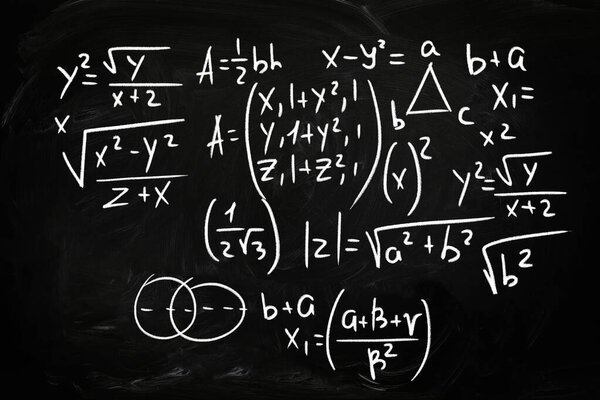 y²=√y/(x+2)
A=½bh
x-y²=
a
b
c
b+a
x₁=
x²
x√((x²-y²)/(z+x))
A=(x,1+y²,1
y,1+y²,1
z,1+z²,1)
(x)²
y²=√y/(x+2)
(1/(2√3))
|z|=√(a²+b²)
√b²
b+a
x₁=((a+β+γ)/β²)